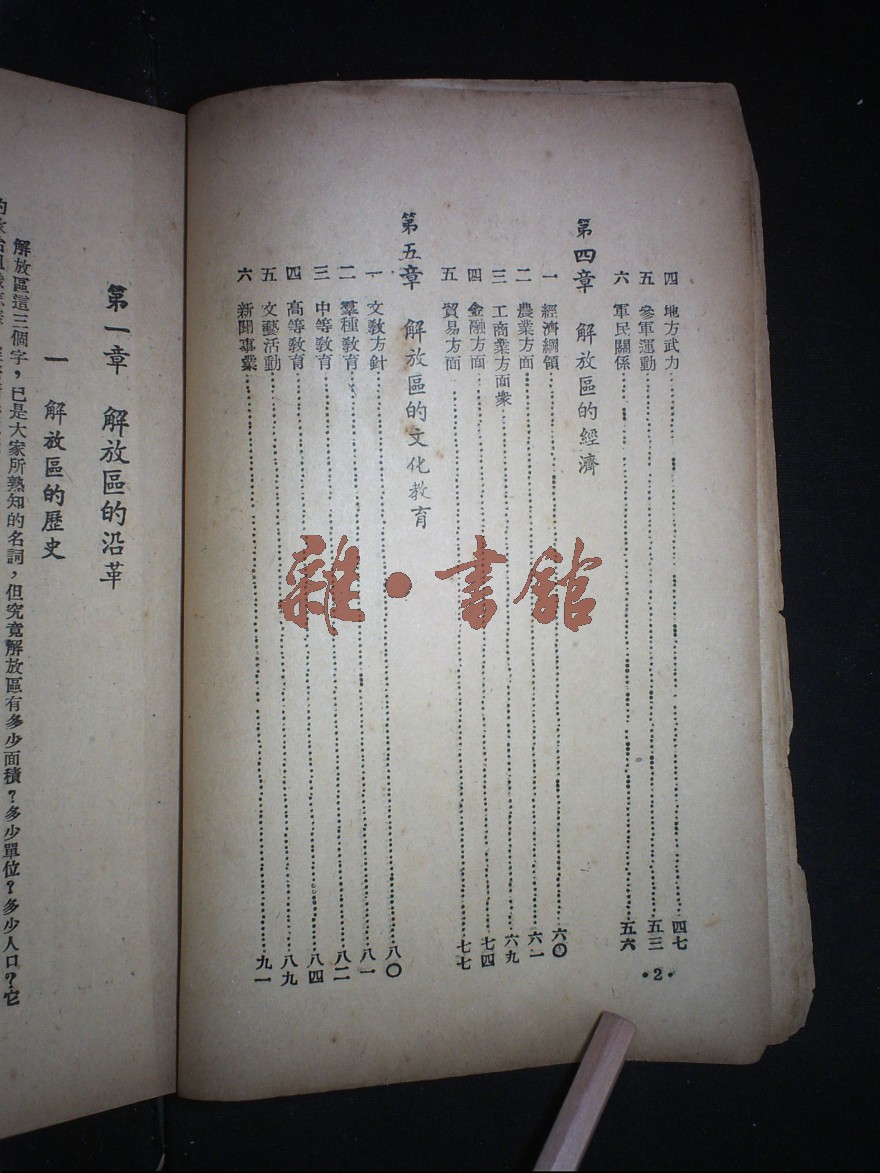 四　地方武力……四七
五　參軍運動……五三
六　軍民關係……五六
第四章　解放區的經濟
一　經濟綱領……六〇
二　農業方面……六一
三　工商業方面衆……六九
四　金融方面……七四
五　貿易方面……七七
第五章　解放區的文化教育
一　文敎方針……八〇
二　羣種敎育……八一
三　中等敎育……八二
四　高等敎育……八四
五　文藝活動……八九
六　新聞事業……九一
•2•
第一章　解放區的沿革
一　解放區的歷史
解放區這三個字，已是大家所熟知的名詞，但究竟解放區有多少面積？多少單位？多少人口？它
雜•書館